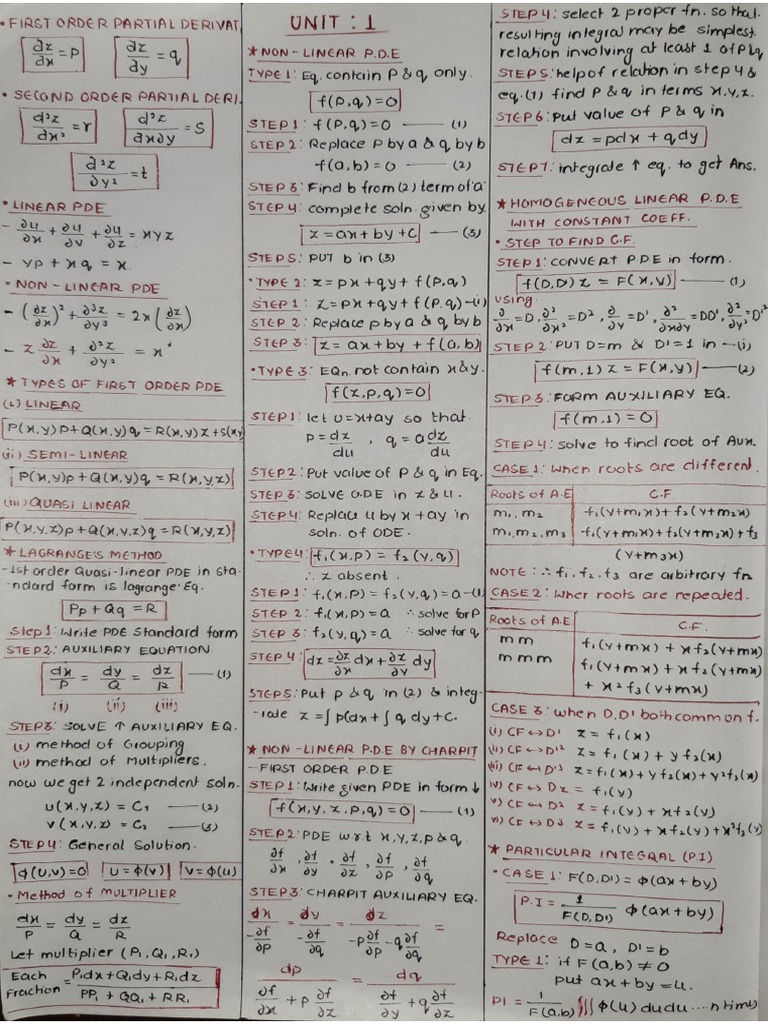 • FIRST ORDER PARTIAL DERIVAT
∂z/∂x = P   ∂z/∂y = q
• SECOND ORDER PARTIAL DERI.
∂²z/∂x² = r   ∂²z/∂x∂y = S
∂²z/∂y² = t
• LINEAR PDE
- ∂u/∂x + ∂u/∂v + ∂u/∂z = xyz
- yp + xq = x
• NON-LINEAR PDE
- (∂z/∂x)² + ∂³z/∂y³ = 2x(∂z/∂x)
- z ∂z/∂x + ∂²z/∂y² = x
* TYPES OF FIRST ORDER PDE
(i) LINEAR
P(x,y)p + Q(x,y)q = R(x,y)z + S(x,y
(ii) SEMI-LINEAR
P(x,y)p + Q(x,y)q = R(x,y,z)
(iii) QUASI LINEAR
P(x,y,z)p + Q(x,y,z)q = R(x,y,z)
* LAGRANGE'S METHOD
- 1st order Quasi-linear PDE in sta-
-ndard form is lagrange Eq.
Pp + Qq = R
Step 1: Write PDE Standard form
STEP2: AUXILIARY EQUATION
dx/P = dy/Q = dz/R —(1)
(i) (ii) (iii)
STEP3: SOLVE ↑ AUXILIARY EQ.
(i) method of Grouping
(ii) method of Multipliers.
now we get 2 independent soln.
u(x,y,z) = C₁ —(2)
v(x,y,z) = C₂ —(3)
STEP4: General Solution.
ϕ(u,v)=0   u = ϕ(v)   v = ϕ(u)
• Method of MULTIPLIER
dx/P = dy/Q = dz/R
Let multiplier (P₁, Q₁, R₁)
Each Fraction = P₁dx + Q₁dy + R₁dz / PP₁ + QQ₁ + RR₁
UNIT : 1
* NON-LINEAR P.D.E
TYPE 1: Eq. contain P & q only.
f(P,q) = 0
STEP 1: f(P,q) = 0 —(1)
STEP 2: Replace P by a & q by b
f(a,b) = 0 —(2)
STEP 3: Find b from (2) term of 'a'
STEP 4: complete soln. given by
z = ax + by + c —(3)
STEP 5: PUT b in (3)
• TYPE 2: z = px + qy + f(P,q)
STEP 1: z = px + qy + f(P,q) —(i)
STEP 2: Replace p by a & q by b
STEP 3: z = ax + by + f(a,b)
• TYPE 3: EQn. not contain x & y.
f(z,p,q) = 0
STEP 1: let u = x + ay so that.
p = dz/du , q = a dz/du
STEP 2: Put value of P & q in Eq.
STEP 3: SOLVE O.D.E in z & u.
STEP 4: Replace u by x + ay in
soln. of ODE.
• TYPE 4: f₁(x,p) = f₂(y,q)
∴ z absent.
STEP 1: f₁(x,P) = f₂(y,q) = a —(1)
STEP 2: f₁(x,P) = a ∴ solve for P
STEP 3: f₂(y,q) = a ∴ solve for q
STEP 4: dz = ∂z/∂x dx + ∂z/∂y dy
STEP5: Put p & q in (2) & integ-
-rate z = ∫pdx + ∫q dy + C.
* NON-LINEAR P.D.E BY CHARPIT
- FIRST ORDER P.D.E
STEP 1: Write given PDE in form ↓
f(x,y,z,p,q) = 0 —(1)
STEP2: PDE w.r.t x,y,z,p & q.
∂f/∂x , ∂f/∂y , ∂f/∂z , ∂f/∂p , ∂f/∂q
STEP3: CHARPIT AUXILIARY EQ.
dx/-∂f/∂p = dy/-∂f/∂q = dz/-p∂f/∂p - q∂f/∂q =
dp/∂f/∂x + p ∂f/∂z = dq/∂f/∂y + q∂f/∂z
STEP 4: select 2 proper fn. so that
resulting integral may be simplest
relation involving at least 1 of P & q
STEP 5: help of relation in step 4 &
eq.(1) find P & q in terms x,y,z.
STEP 6: Put value of P & q in
dz = pdx + qdy
STEP 7: integrate ↑ eq. to get Ans.
* HOMOGENEOUS LINEAR P.D.E
WITH CONSTANT COEFF.
• STEP TO FIND C.F.
STEP 1: CONVERT P.D.E in form.
f(D,D')z = F(x,y) —(1)
using.
∂/∂x = D, ∂²/∂x² = D², ∂/∂y = D', ∂²/∂x∂y = DD', ∂²/∂y² = D'²
STEP 2: PUT D=m & D'=1 in —(i)
f(m,1)z = F(x,y) —(2)
STEP 3: FORM AUXILIARY EQ.
f(m,1) = 0
STEP 4: solve to find root of Aux.
CASE 1: When roots are different.
Roots of A.E   C.F.
m₁,m₂   f₁(y+m₁x) + f₂(y+m₂x)
m₁,m₂,m₃   f₁(y+m₁x) + f₂(y+m₂x) + f₃
(y+m₃x)
NOTE: ∴ f₁.f₂.f₃ are arbitrary fn.
CASE 2: When roots are repeated.
Roots of A.E   C.F.
m m   f₁(y+mx) + xf₂(y+mx)
m m m   f₁(y+mx) + xf₂(y+mx)
+ x²f₃(y+mx)
CASE 3: when D,D' both common f.
i) CF ↔ D' z = f₁(x)
ii) CF ↔ D'² z = f₁(x) + yf₂(x)
iii) CF ↔ D'³ z = f₁(x) + yf₂(x) + y²f₃(x)
iv) CF ↔ D z = f₁(y)
v) CF ↔ D² z = f₁(y) + xf₂(y)
vi) CF ↔ D³ z = f₁(y) + xf₂(y) + x²f₃(y)
* PARTICULAR INTEGRAL (P.I)
• CASE 1: F(D,D') = ϕ(ax + by)
P.I = 1/F(D,D') ϕ(ax + by)
Replace D = a, D' = b
TYPE 1: if F(a,b) ≠ 0
put ax + by = u.
PI = 1/F(a,b) ∫∫∫ ϕ(u) du du ... n times